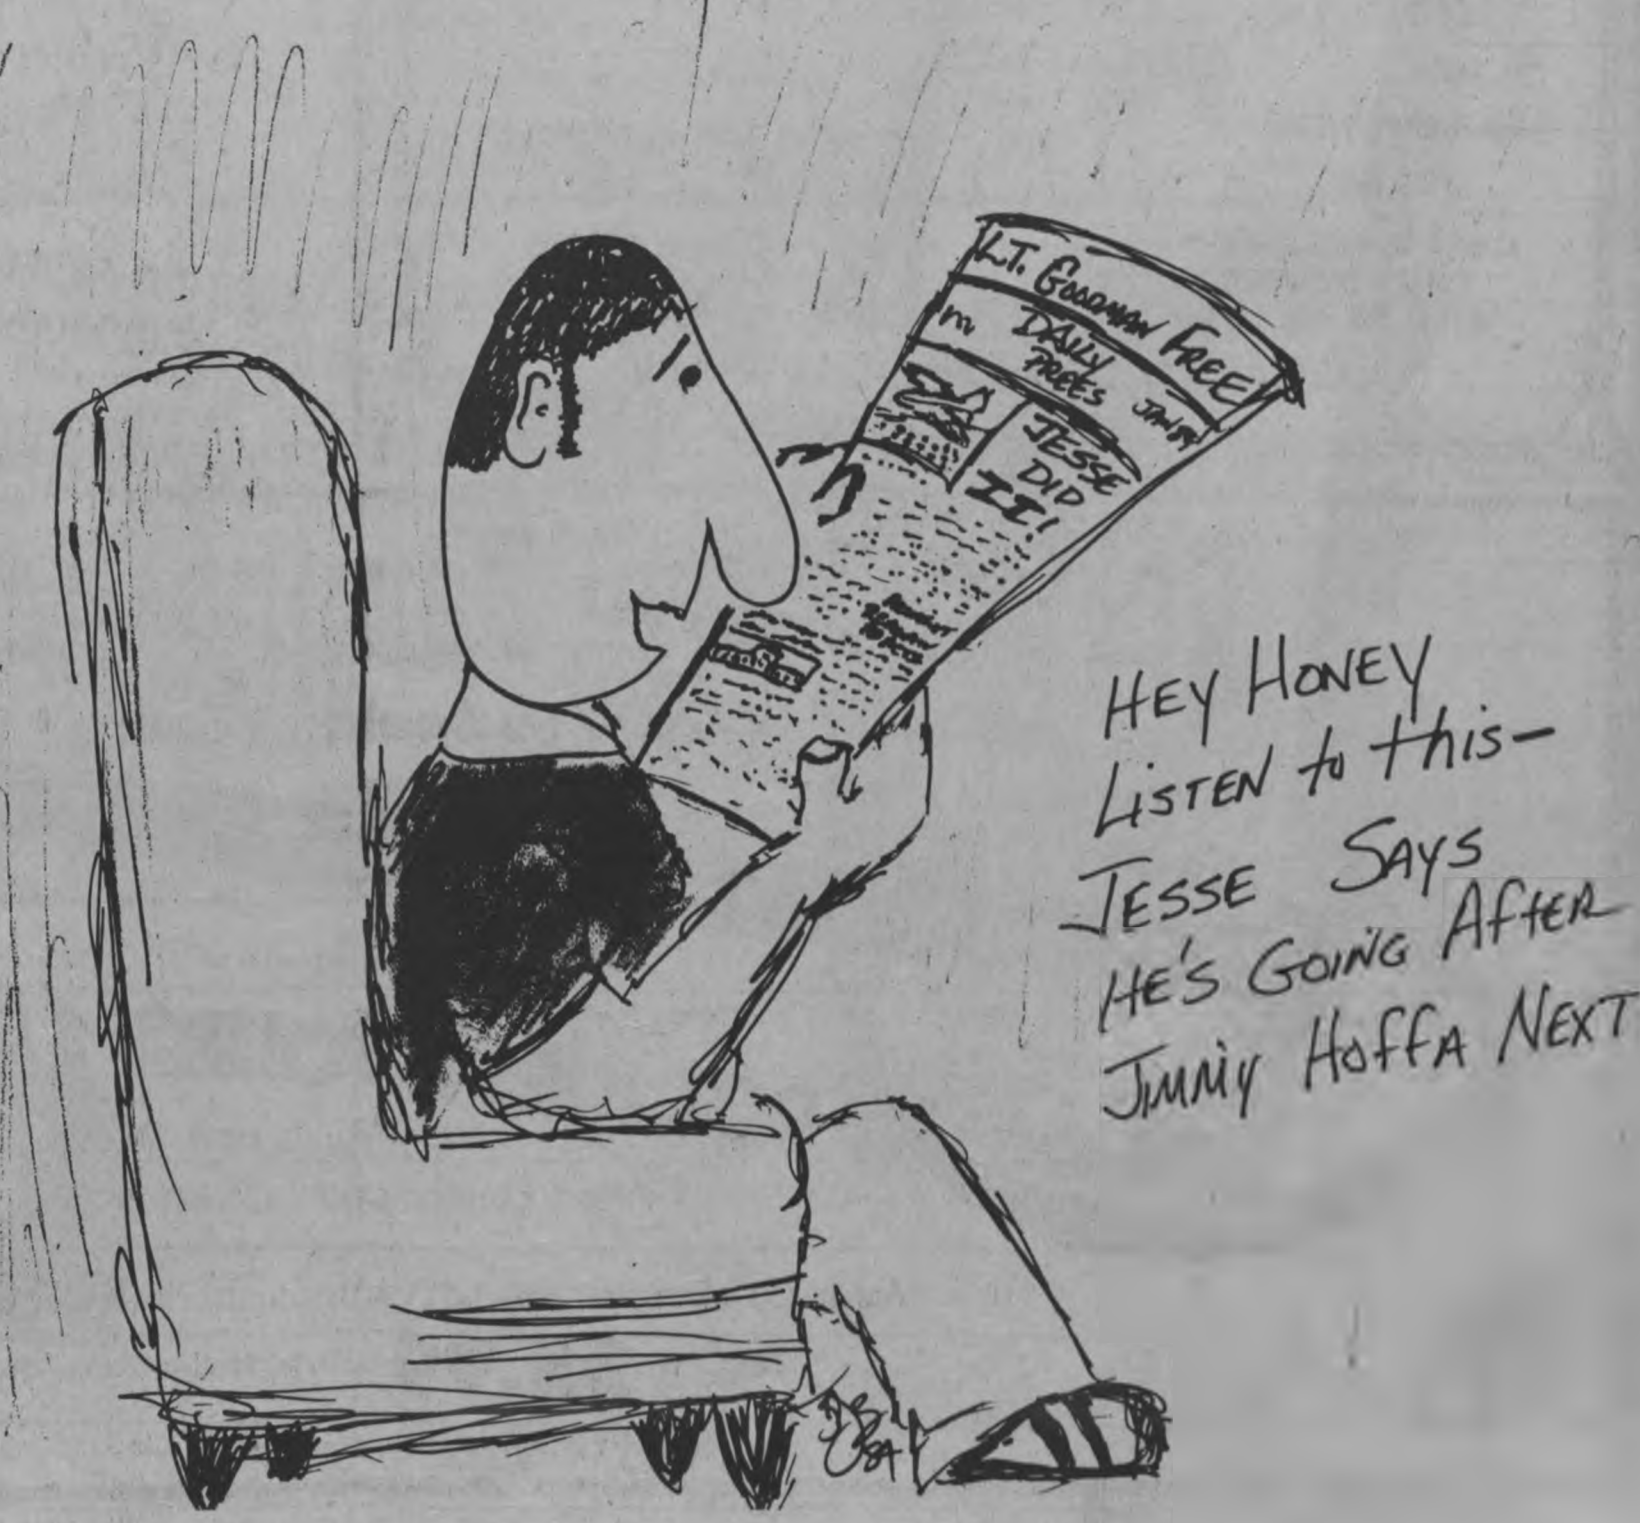 LT. GOODMAN FREE!
DAILY
PREES JAN 84
JESSE
DID
IT!
HEY HONEY
LISTEN to this—
JESSE SAYS
HE'S GOING AFTER
JIMMY HOFFA NEXT
84